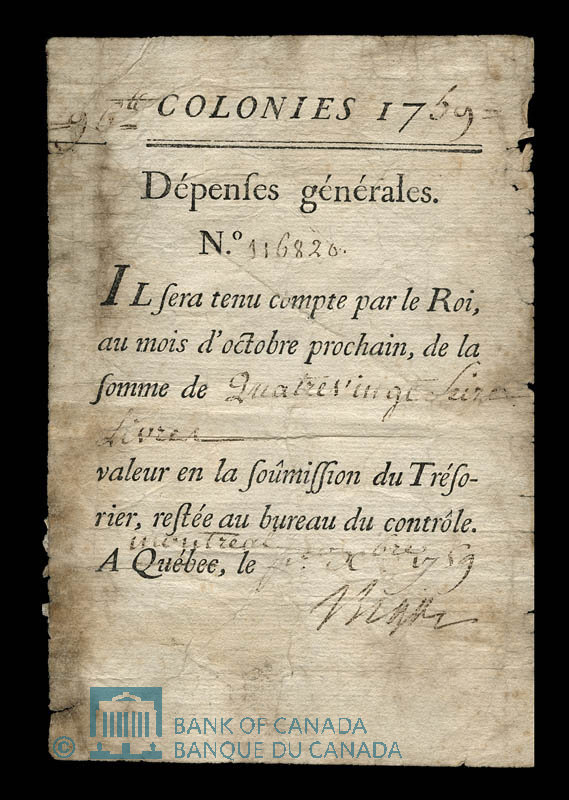 96tt COLONIES 1759
Dépenſes générales.
N.º 116820.
IL ſera tenu compte par le Roi,
au mois d'octobre prochain, de la
ſomme de Quatrevingt Seize
Livres
valeur en la ſoûmiſſion du Tréſo-
rier, reſtée au bureau du contrôle.
montreal
A Québec, le 1759
Bigot
© BANK OF CANADA
BANQUE DU CANADA